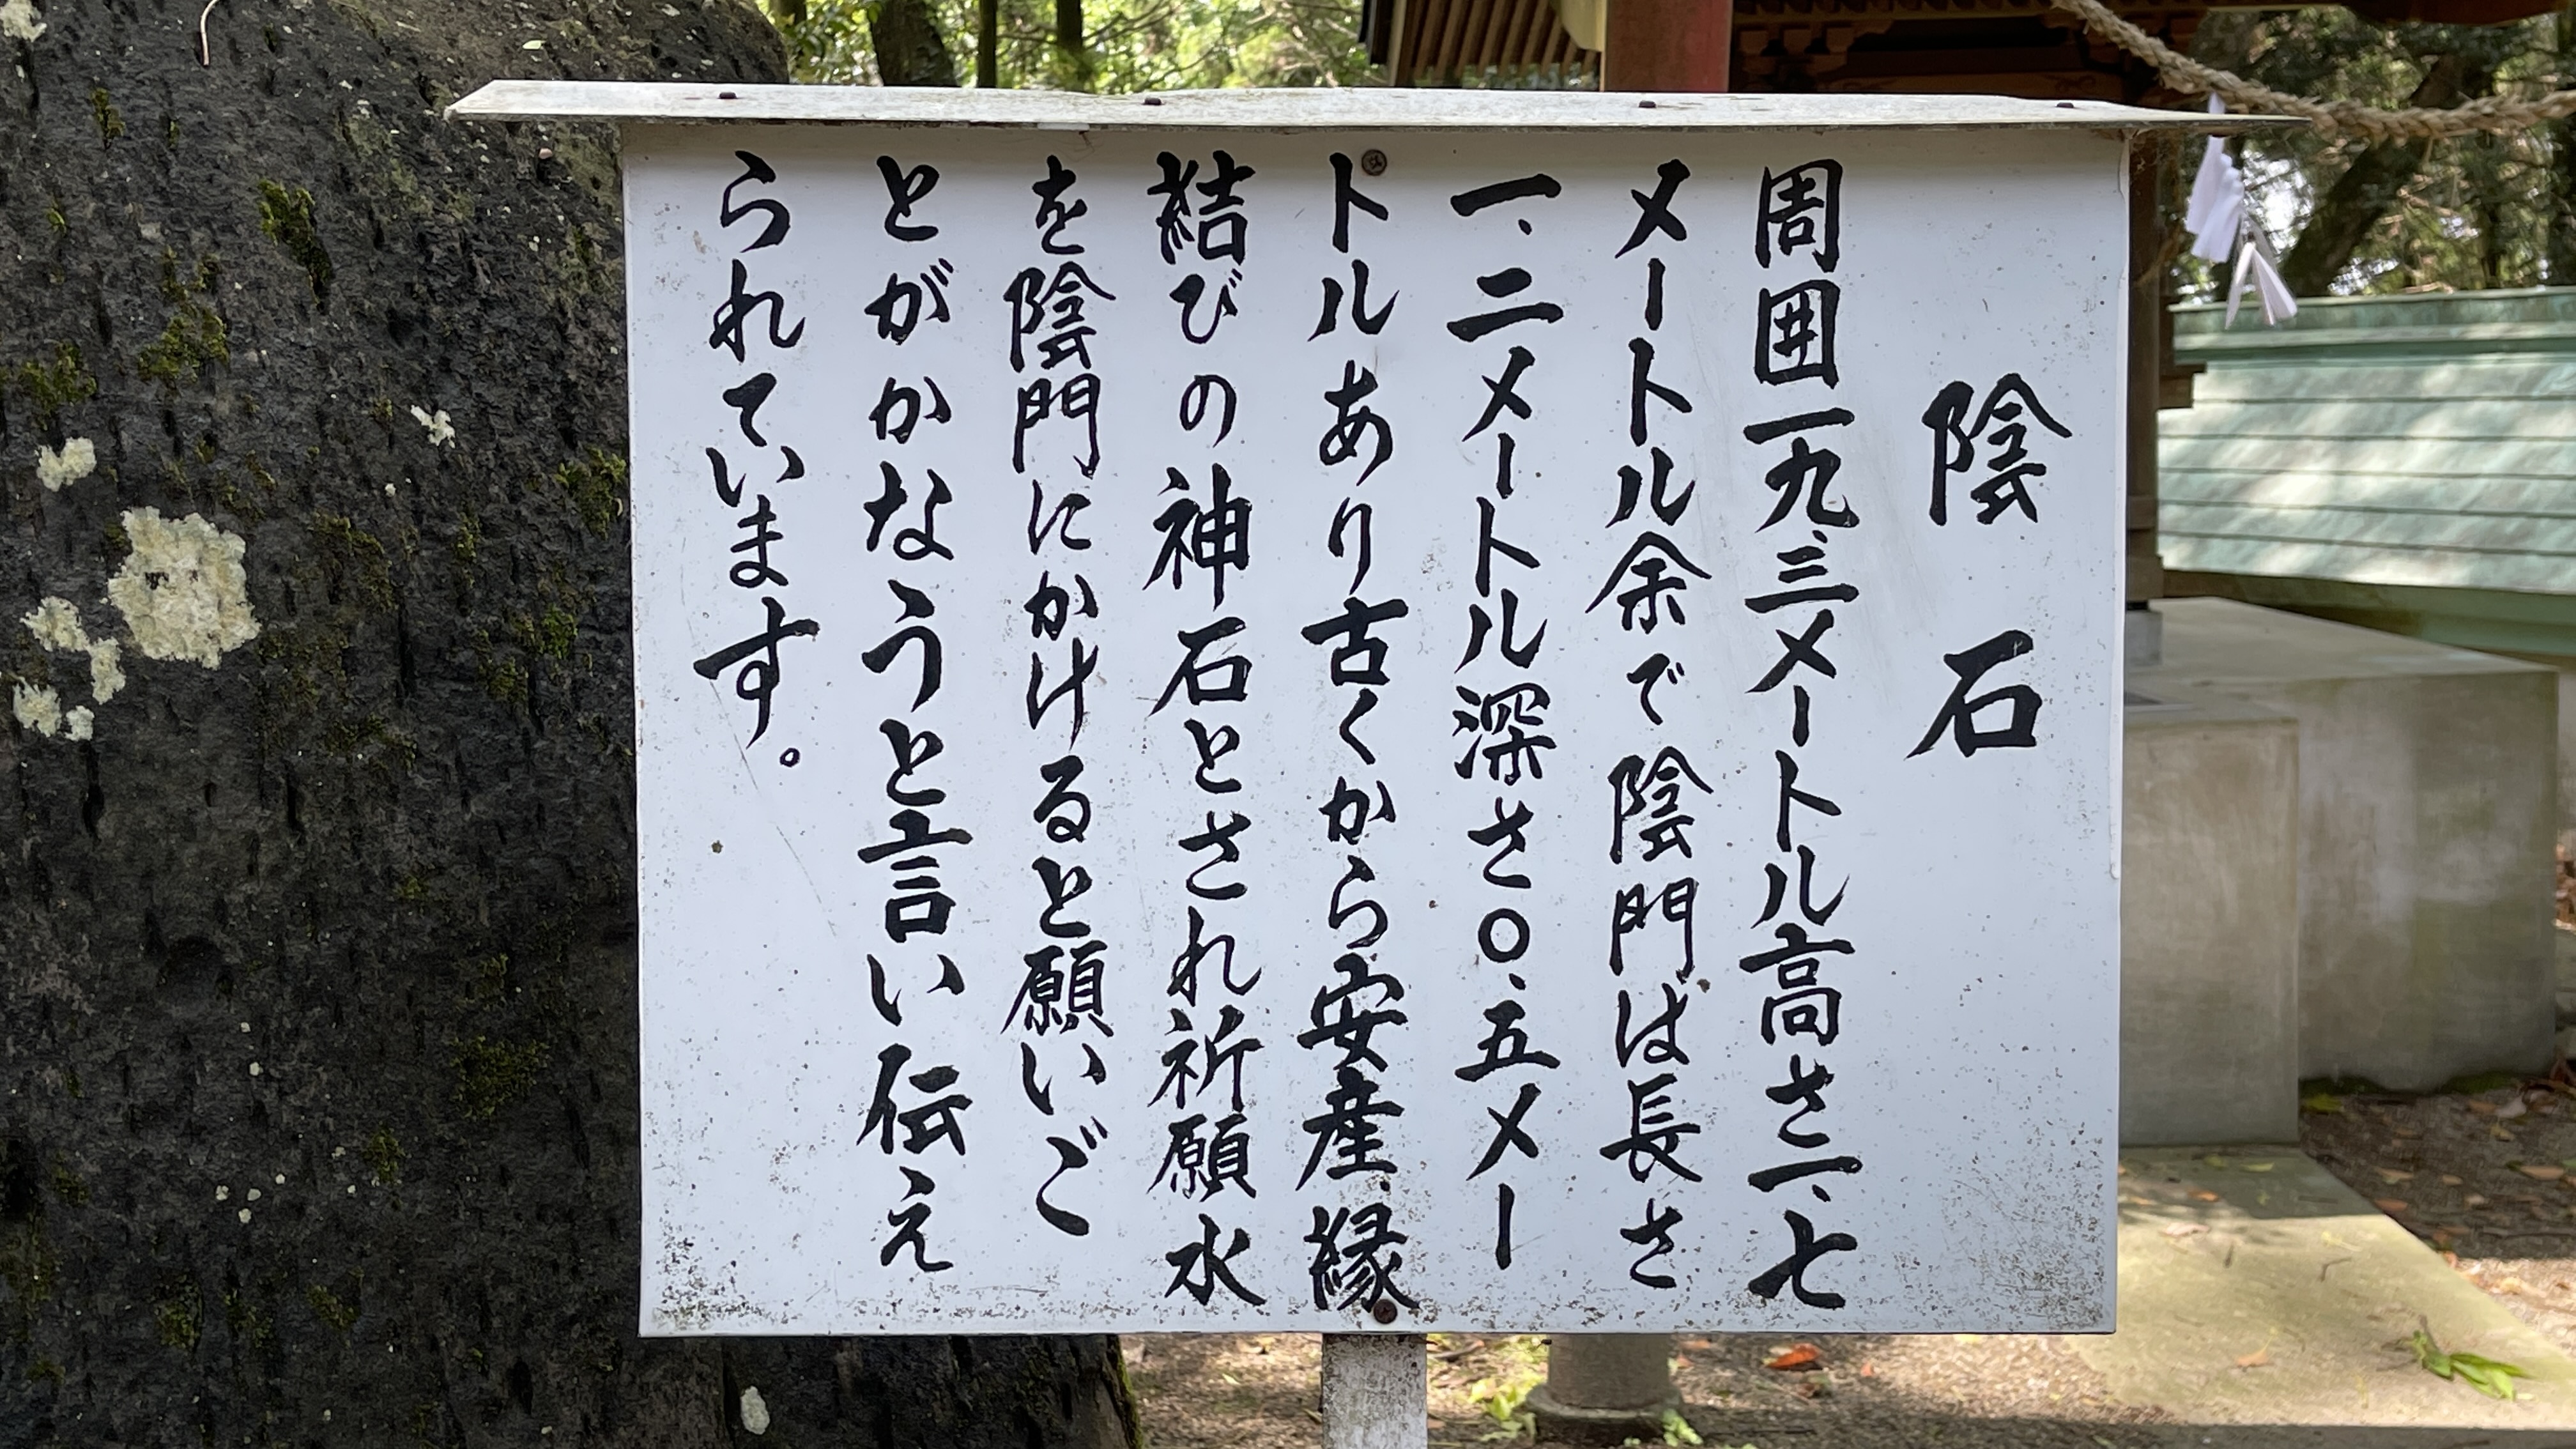 陰石
周囲一九.三メートル高さ二.七
メートル余で陰門は長さ
一.二メートル深さ〇.五メー
トルあり古くから安産.縁
結びの神石とされ祈願水
を陰門にかけると願いご
とがかなうと言い伝え
られています。